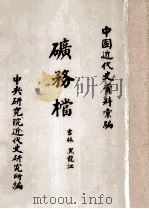 中國近代史資料彙編
礦務檔
吉林 黑龍江
中央研究院近代史研究所編